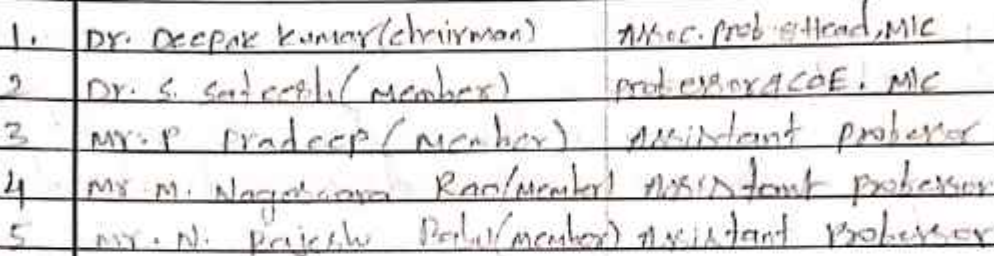 1. Dr. Deepak Kumar (chairman) Assoc. prof & Head, MIC
2 Dr. S. Sateesh (Member) professor & COE. MIC
3 Mr. P Pradeep (Member) Assistant professor
4 Mr M. Nageswara Rao (Member) Assistant professor
5 Mr. N. Rajesh (member) Assistant Professor